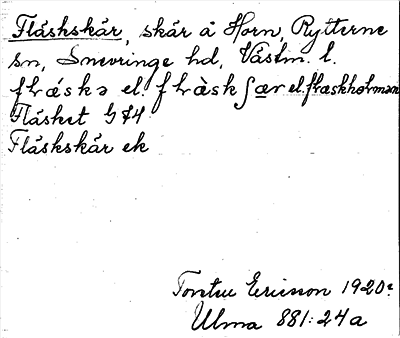 Fläskskär, skär å Horn, Rytterne
sn, Snevringe hd, Västm. l.
fḷǽskə el. fḷæ̀skʃær el. flæskhølmən
Fläsket G84
Fläskskär ek
Torsten Ericsson 1920?
Ulma 881:24a